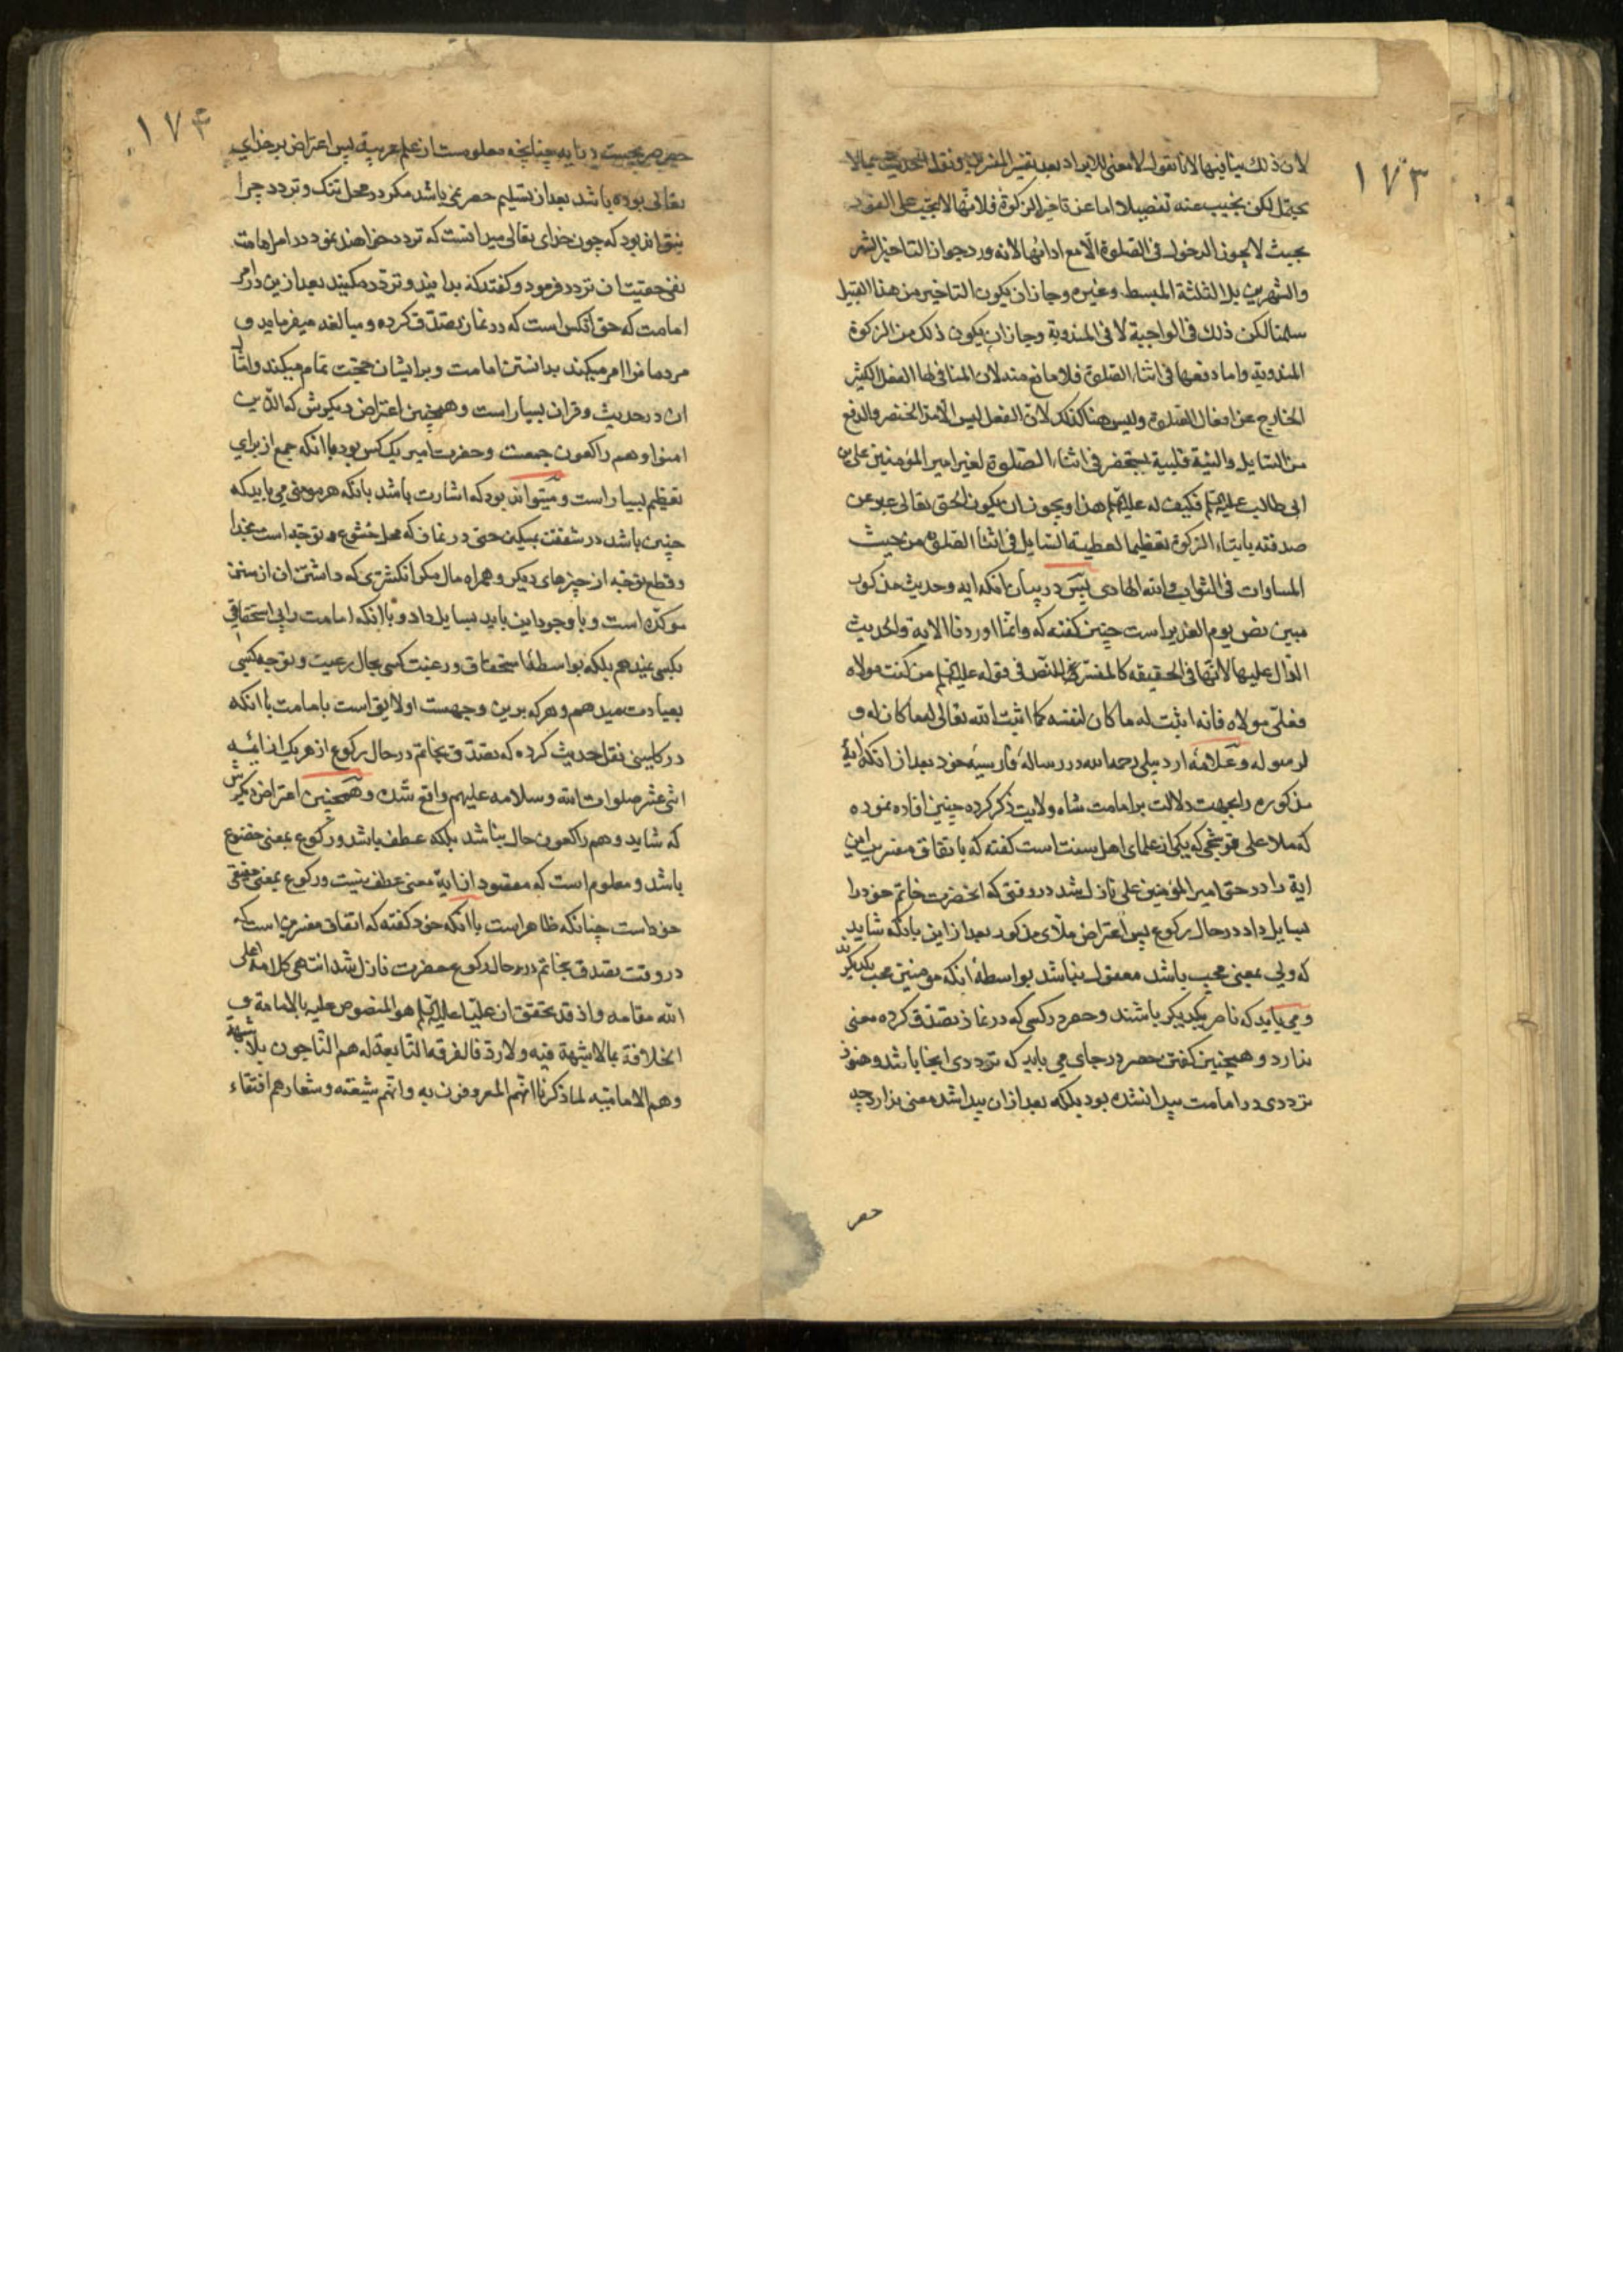 ١٧٣
لان ذلك ينافيها لانا نقول لا معنى للايراد بعد تقرير المفسرين ونقل الحديث بما لا
يحتمل لكن نجيب عنه تفصيلا اما عن تاخير الزكوة فلانها لا تجب على الفور
بحيث لا يجوز الدخول فى الصلوة الا مع ادائها لانه ورد جواز التاخير الشهر
والشهرين بل الثلثة المبسط وغيره وجاز ان يكون التاخير من هذا القبيل
سلمنا لكن ذلك فى الواجبة لا فى المندوبة وجاز ان يكون ذلك من الزكوة
المندوبة واما دفعها فى اثناء الصلوة فلا مانع منه لان المنافى لها الفعل الكثير
الخارج عن افعال الصلوة وليس هنا كذلك لان الفعل ليس الا مد الخنصر والدفع
من السايل والنية قلبية يستحضر فى اثناء الصلوة لغير امير المؤمنين على بن
ابى طالب عليه السلم فكيف له عليه السلم هذا ويجوز ان يكون الحق تعالى عبر عن
صدقته بايتاء الزكوة تعظيما لعطية السايل فى اثناء الصلوة من حيث
المساوات فى الثواب والله الهادى پس در بيان انكه ايه وحديث مذكور
مبين نص يوم الغدير است چنين كفته كه وانما اوردنا الاية والحديث
الدال عليها لانها فى الحقيقه كالمفسر للنص فى قوله عليه السلم من كنت مولاه
فعلى مولاه فانه اثبت له ما كان لنفسه كما اثبت الله تعالى له ما كان له و
لرسوله وعلامهٔ اردبيلى رحمه الله در رسالهٔ فارسيهٔ خود بعد از انكه ايهٔ
مذكوره را بجهت دلالت بر امامت شاه ولايت ذكر كرده چنين افاده نموده
كه ملا على قوشجى كه يكى از علماى اهل سنت است كفته كه باتفاق مفسرين اين
اية را در حق امير المؤمنين على نازل شد در وقتى كه انحضرت خاتم خود را
بسايل داد در حال ركوع پس اعتراض ملاى مذكور بعد از اين بانكه شايد
كه ولى بمعنى محب باشد معقول نباشد بواسطهٔ انكه مؤمنين محب يكديكرند
ومى بايد كه ناصر يكديكر باشند وحصر در كسى كه در نماز تصدق كرده معنى
ندارد وهمچنين كفتن حصر در جاى مى بايد كه ترددى انجا باشد وهنوز
ترددى در امامت پيدا نشده بود بلكه بعد از ان پيدا شد معنى ندارد چه
حصر
١٧٤
حصر صريحست در ايه چنانچه معلومست از علم عربية پس اعتراض بر خداى
تعالى بوده باشد بعد از تسليم حصر نمى باشد مكر در محل شك وتردد چرا
نتواند بود كه چون خداى تعالى ميدانست كه تردد خواهند نمود در امر امامت
نفى حقيت ان تردد فرمود وكفت كه بدانيد وتردد مكنيد بعد ازين در امر
امامت كه حق انكس است كه در نماز تصدق كرده ومبالغه ميفرمايد و
مردمانرا امر ميكند بدانستن امامت وبر ايشان حجت تمام ميكند وامثال
ان در حديث وقران بسيار است وهمچنين اعتراض ديكرش كه الذين
امنوا وهم راكعون جمعست وحضرت امير يك كس بود باانكه جمع از براى
تعظيم بسيار است وميتواند بود كه اشارت باشد بانكه هر مومنى مى بايد كه
چنين باشد در شفقت بمسكين حتى در نماز كه محل خشوع وتوجه است بخدا
وقطع توجه از چيزهاى ديكر وهمراه مال مكر انكشترى كه داشتن ان از سنن
موكده است وبا وجود اين بايد بسايل داد وباانكه امامت را بى استحقاق
بكسى نميدهم بلكه بواسطهٔ استحقاق ورغبت كسى بحال رعيت وتوجه كسى
بعبادت ميدهم وهر كه برين وجهست اولا يق است بامامت باانكه
در كلينى نقل حديث كرده كه تصدق بخاتم در حال ركوع از هر يك از ائمه
اثنى عشر صلوات الله وسلامه عليهم واقع شده وهمچنين اعتراض ديكرش
كه شايد وهم راكعون حال نباشد بلكه عطف باشد وركوع بمعنى خضوع
باشد ومعلوم است كه مقصود از ايه معنى عطف نيست وركوع بمعنى حقيقى
خود است چنانكه ظاهر است باانكه خود كفته كه اتفاق مفسرين است كه
در وقت تصدق بخاتم در حال ركوع حضرت نازل شد انتهى كلامه اعلى
الله مقامه واذ قد تحقق ان عليا عليه السلم هو المنصوص عليه بالامامة و
الخلافة بما لا شبهة فيه ولا رد فالفرقه التابعة له هم الناجون بلا شبهة
وهم الامامية لما ذكرنا انهم المعروفون به وانهم شيعته وشعارهم اقتفاء